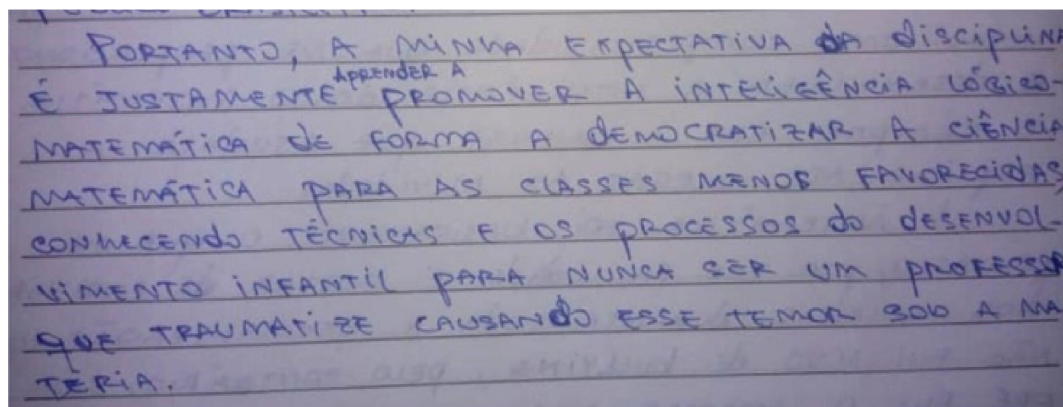 PORTANTO, A MINHA EXPECTATIVA DA DISCIPLINA
APRENDER A
É JUSTAMENTE PROMOVER A INTELIGÊNCIA LÓGICO
MATEMÁTICA DE FORMA A DEMOCRATIZAR A CIÊNCIA
MATEMÁTICA PARA AS CLASSES MENOS FAVORECIDAS
CONHECENDO TÉCNICAS E OS PROCESSOS DO DESENVOL
VIMENTO INFANTIL PARA NUNCA SER UM PROFESSOR
QUE TRAUMATIZE CAUSANDO ESSE TEMOR SOB A MA
TÉRIA.